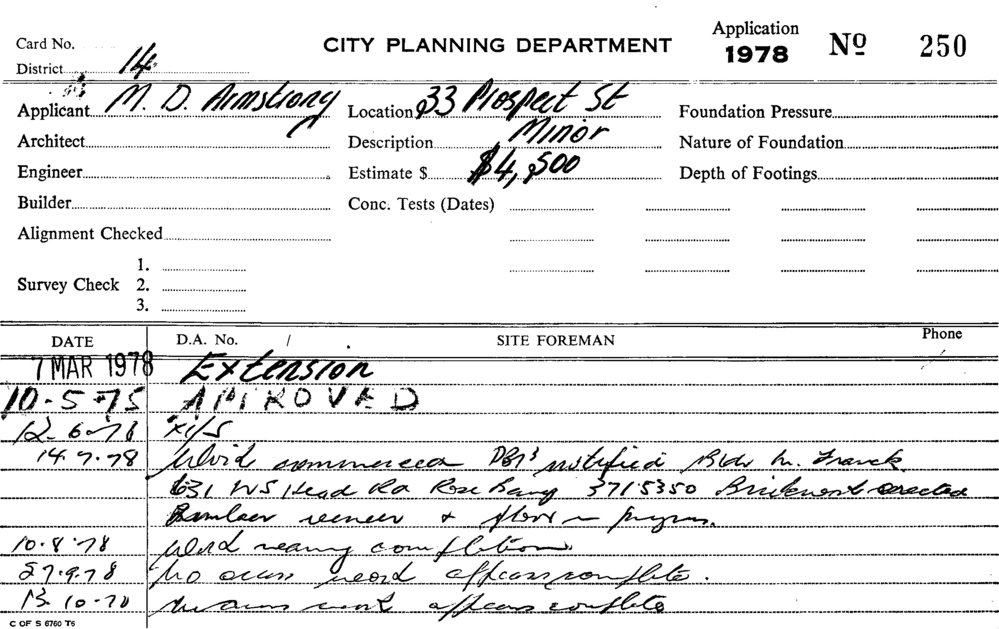 Card No.
CITY PLANNING DEPARTMENT
Application
1978 Nº 250
District 14.
Applicant M. D. Armstrong
Location 33 Prospect St
Foundation Pressure
Architect
Description Minor
Nature of Foundation
Engineer
Estimate $ $4,500
Depth of Footings
Builder
Conc. Tests (Dates)
Alignment Checked
Survey Check 1.
2.
3.
DATE D.A. No. / SITE FOREMAN Phone
7 MAR 1978 Extension
10-5-75 APPROVED
12-6-78
14.7.78 commenced notified Bldr M. Franck
Rd Rose 3715350 Brickwork erected
veneer + floor in
10.8.78 nearing completion
27.9.78 No work appears complete.
13.10-78 work appears complete
C OF S 6760 T5